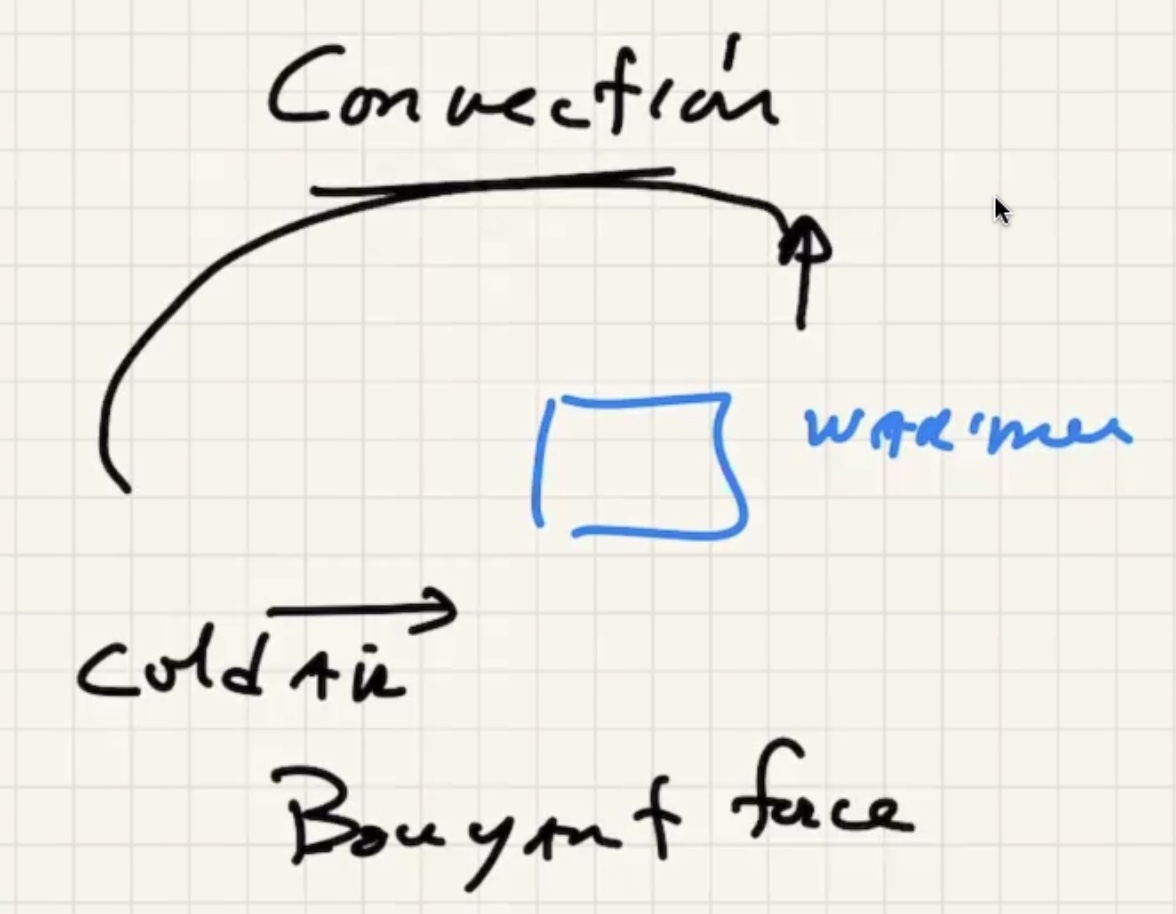 Convection
WARmer
Cold Air
Bouyant force